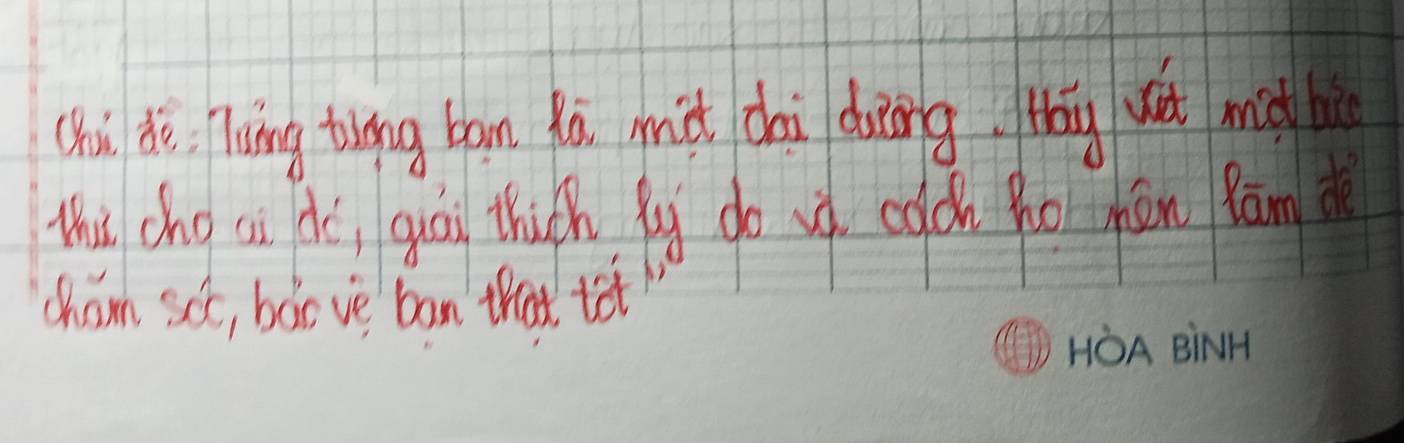 Chủ đề: Tưởng tượng bạn là một đại dương. Hãy viết một bức
thư cho ai đó, giải thích lý do và cách họ nên làm để
chăm sóc, bảo vệ bạn thật tốt"
HÒA BÌNH